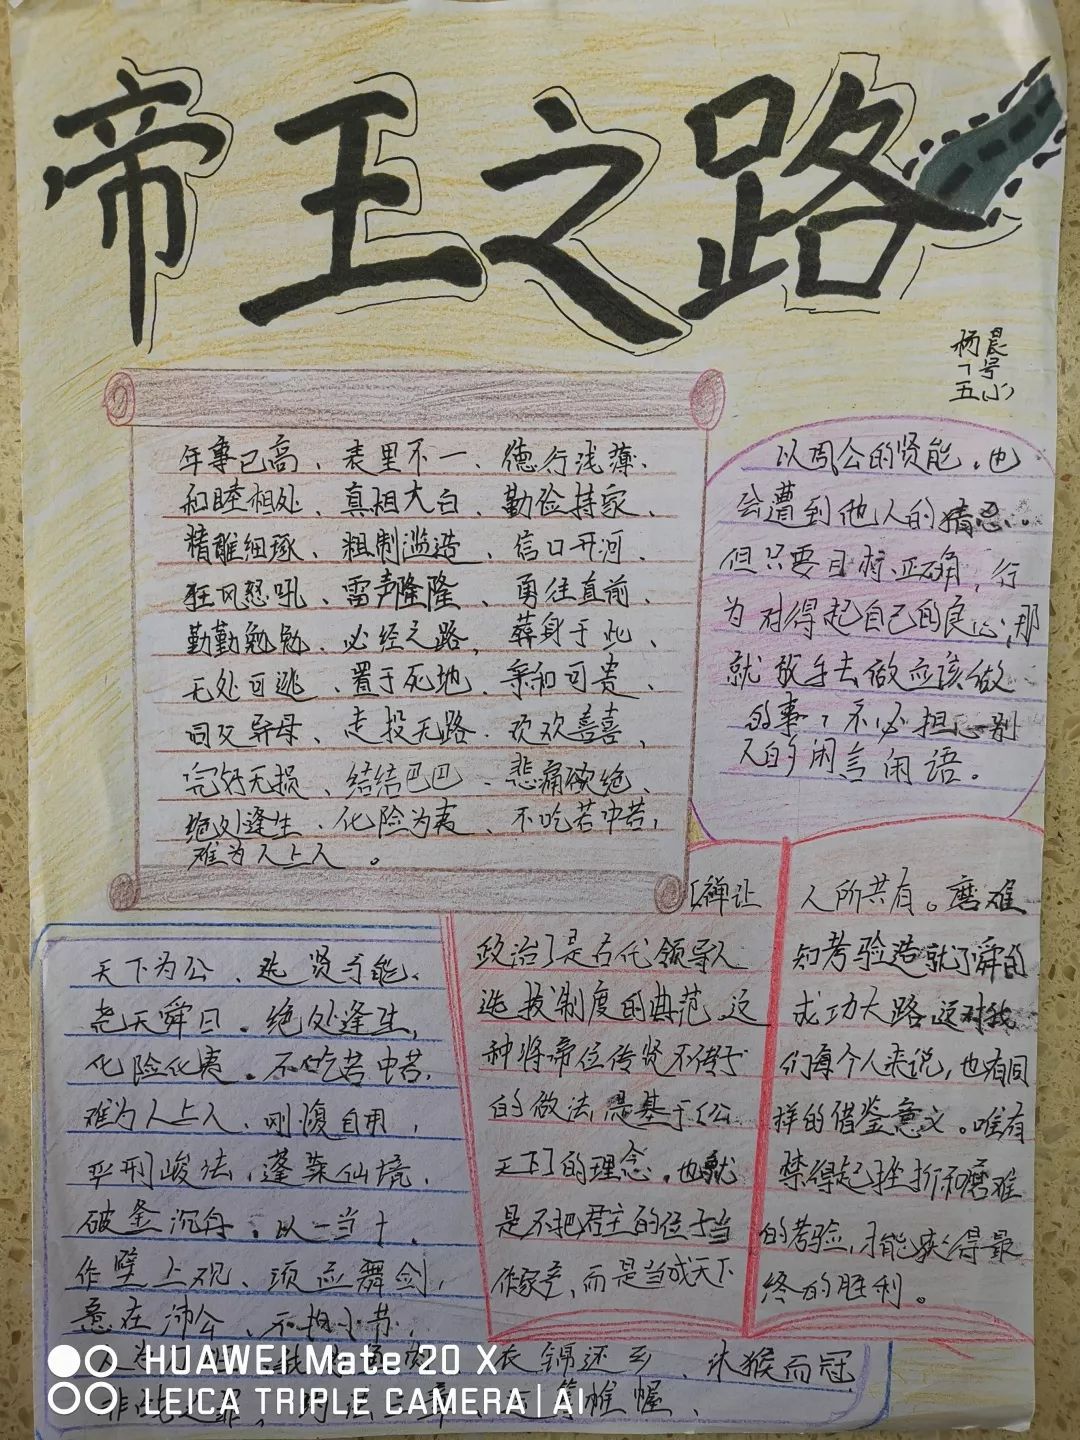 帝王之路
杨晨
7号
五小
年事已高、表里不一、德行浅薄、
和睦相处、真相大白、勤俭持家、
精雕细琢、粗制滥造、信口开河、
狂风怒吼、雷声隆隆、勇往直前、
勤勤勉勉、必经之路、葬身于此、
无处可逃、置于死地、亲和可贵、
同父异母、走投无路、欢欢喜喜、
完好无损、结结巴巴、悲痛欲绝、
绝处逢生、化险为夷、不吃苦中苦,
难为人上人。
以周公的贤能,也
会遭到他人的猜忌..
但只要目标正确,行
为对得起自己的良心,那
就放手去做应该做
的事,不必担心别
人的闲言闲语。
天下为公、选贤与能、
尧天舜日。绝处逢生,
化险化夷。不吃苦中苦,
难为人上人、刚愎自用,
严刑峻法,蓬莱仙境,
破釜沉舟。以一当十。
作壁上观、项庄舞剑,
意在沛公、不拘小节,
衣锦还乡、沐猴而冠
非战之罪,筹帷幄、
「禅让
政治」是古代领导人
选拔制度的典范,这
种将帝位传贤不传子
的做法,是基于「公
天下」的理念。也就
是不把君主的位子当
作家产,而是当成天下
人所共有。磨难
和考验造就了舜的
成功大路,这对我
们每个人来说,也有同
样的借鉴意义。唯有
禁得起挫折和磨难
的考验,才能获得最
终的胜利。
HUAWEI Mate 20 X
LEICA TRIPLE CAMERA | AI